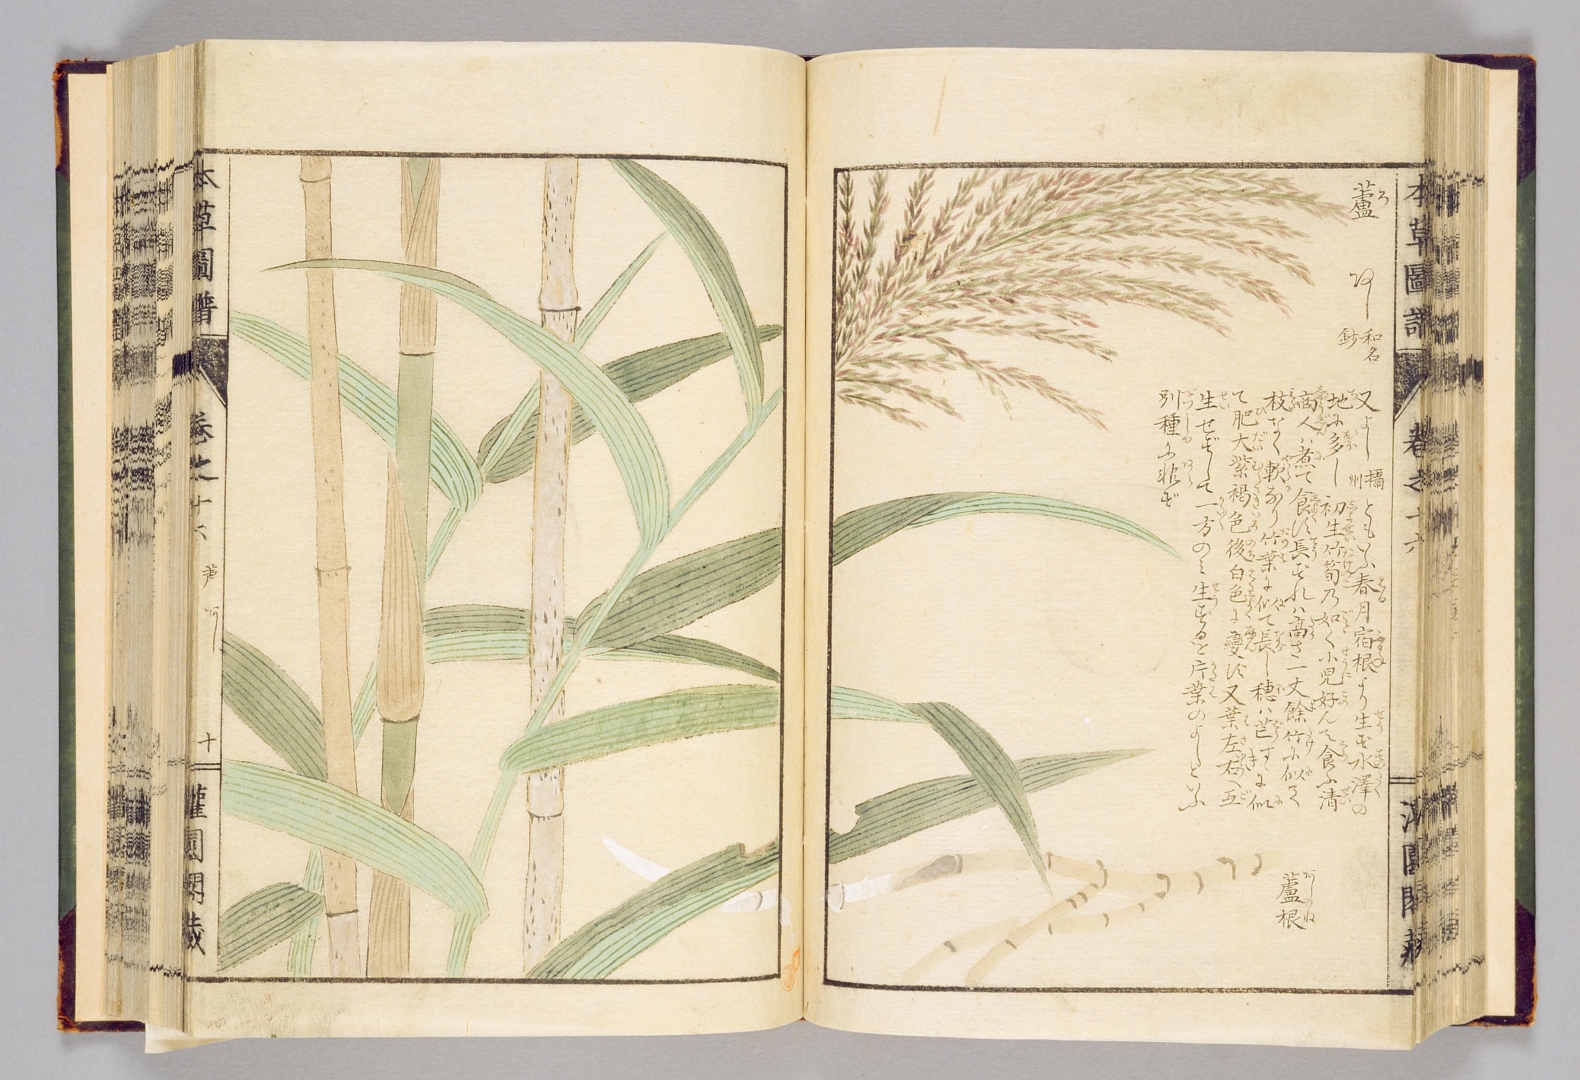 本草圖譜 卷之十六 灌園閣藏
蘆 ろ
あし 和名鈔
又よし 攝州 ともいふ春月宿根より生ず水澤の
地に多し初生竹筍乃如く小児好んで食ふ清
商人ハ煮て食ふ長ずれハ高さ一丈餘竹に似て
枝なく軟なり竹葉に似て長し穂ハ芒すゝきに似
て肥大紫褐色後白色に變ず又葉左右へ互
生せずして一方のミ生ずるを片葉のよしといふ
別種に非ず
蘆根 あしのね
本草圖譜 卷之十六 芦 あし 十 灌園閣藏